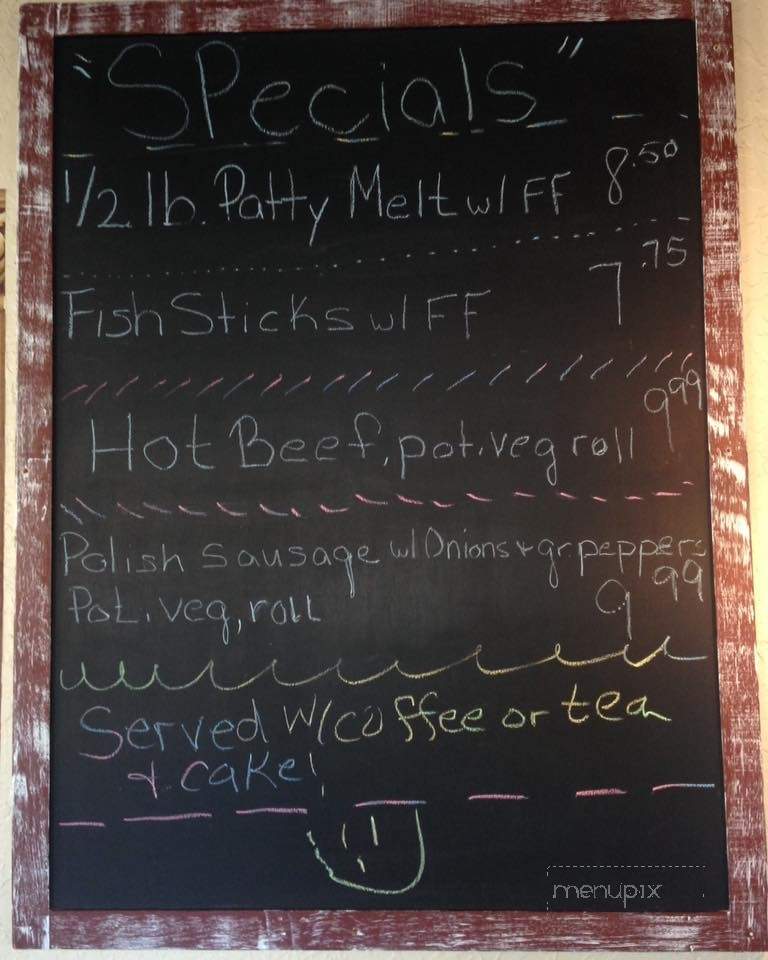 "SPecials"
1/2 lb. Patty Melt w/ FF 8.50
Fish Sticks w/ FF 7.75
Hot Beef, pot. veg roll 9.99
Polish Sausage w/ Onions + gr. peppers
Pot. veg, roll 9.99
Served w/ coffee or tea
& cake!
menupix